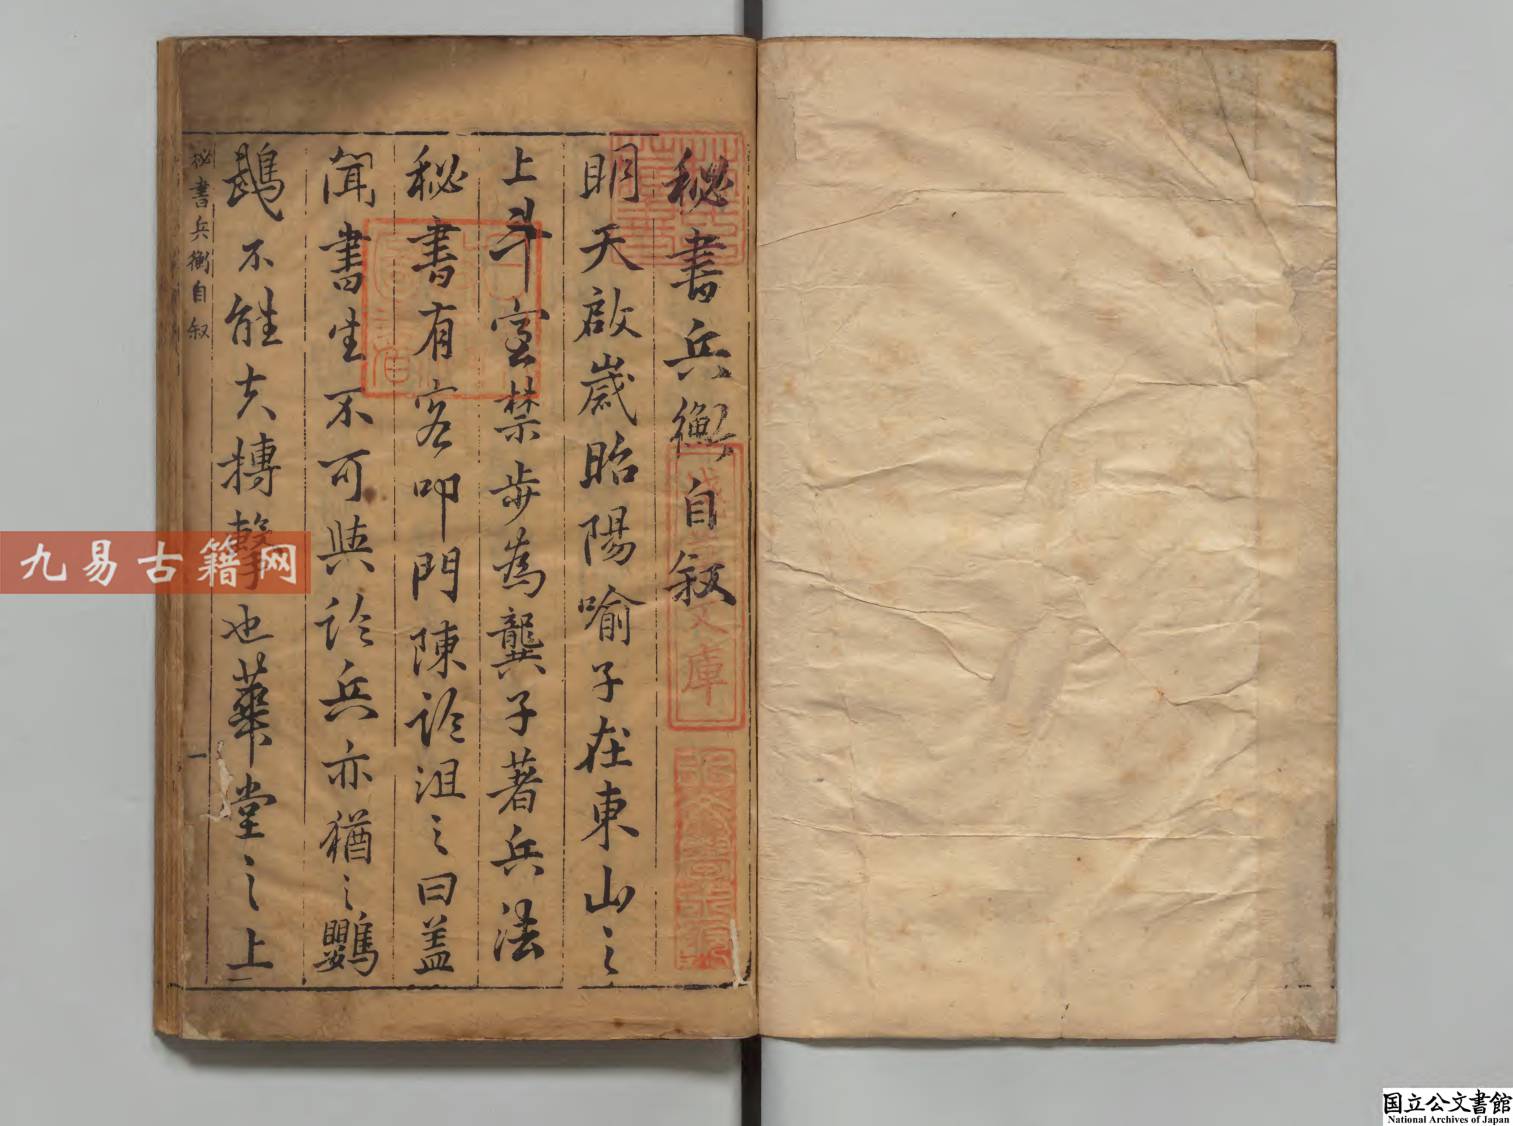 秘書兵衡自叙
明天啟嵗昭陽喻子在東山之
上斗室禁步為龔子著兵法
秘書有客叩門陳論沮之曰盖
聞書生不可與論兵亦猶之鸚
鵡不能大摶擊也華堂之上
秘書兵衡自叙
一
文庫
九易古籍网
国立公文書館
National Archives of Japan